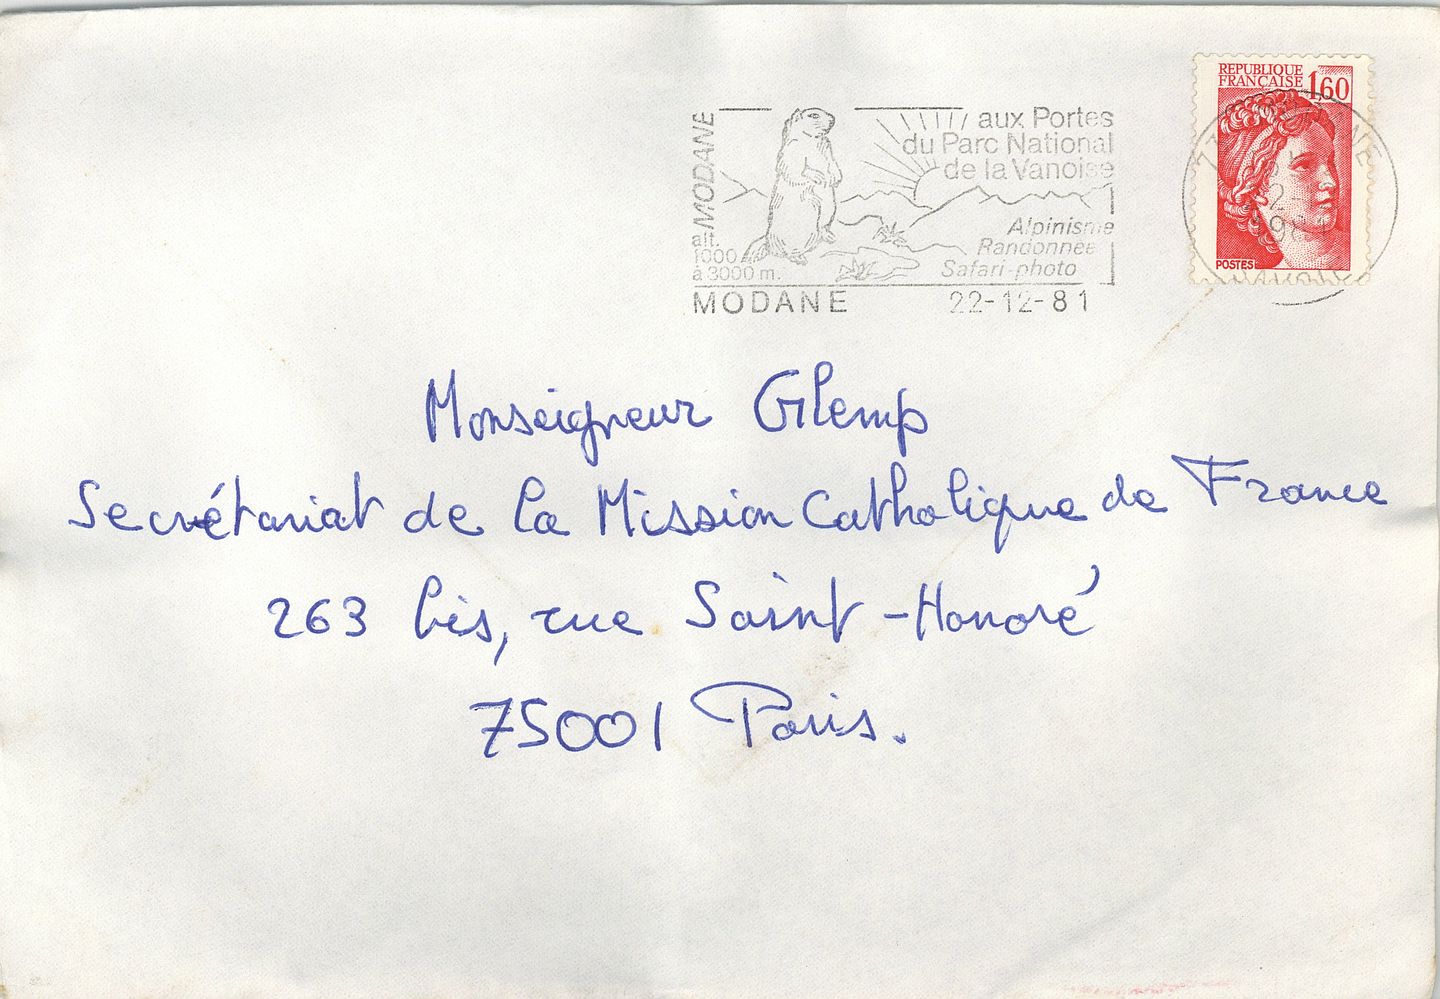 MODANE
alt.
1000
à 3000 m.
aux Portes
du Parc National
de la Vanoise
Alpinisme
Randonnée
Safari-photo
MODANE 22-12-81
REPUBLIQUE
FRANÇAISE 1,60
POSTES
Monseigneur Glemp
Secrétariat de la Mission Catholique de France
263 bis, rue Saint-Honoré
75001 Paris.